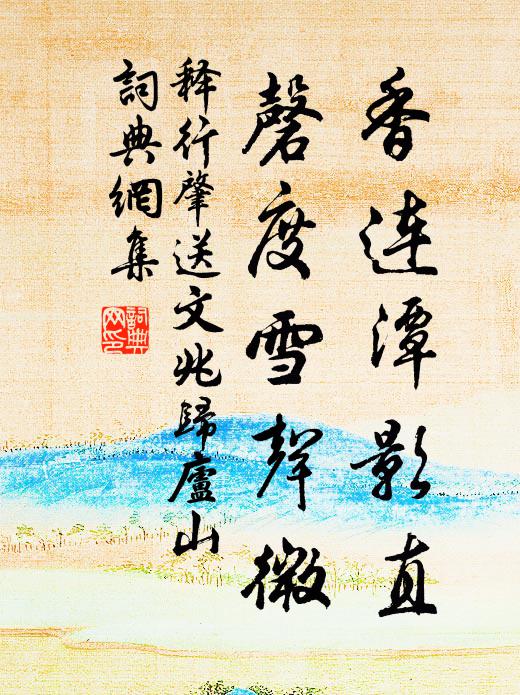 香连潭影直
磬度雪声微
释行肇送文兆歸廬山
詞典網集
詞典网印